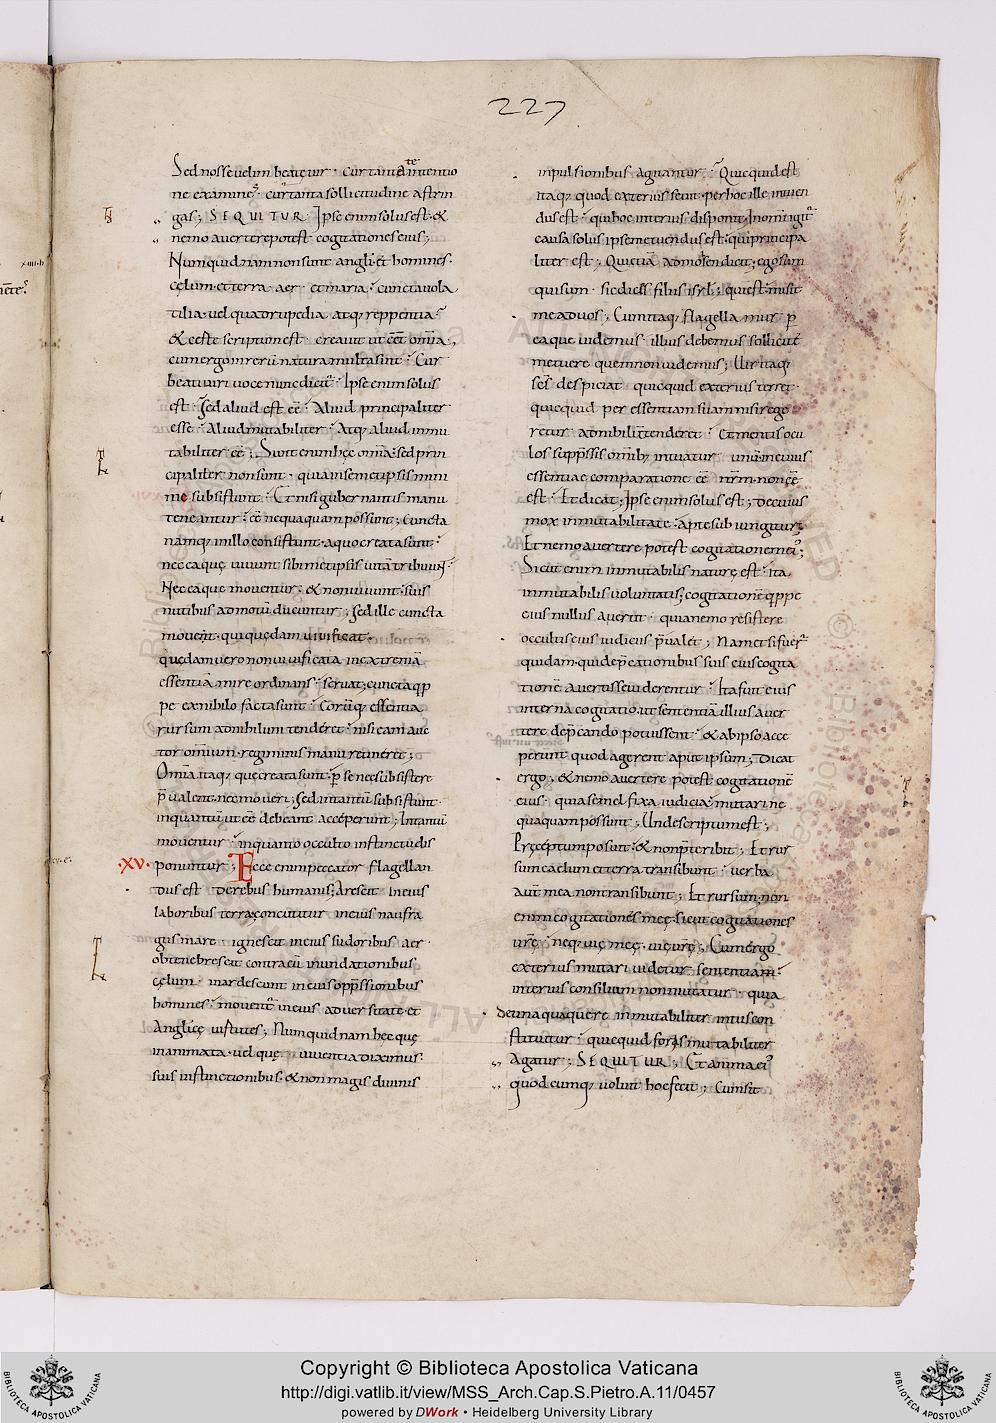 227
Sed nosse velim beate vir · cur tanta te intentio
ne examinet · cur tanta sollicitudine astrin
gas; SEQUITUR· Ipse enim solus est· &
nemo avertere potest cogitationes eius;
Numquidnam non sunt angli et homines·
cęlum et terra aer· et maria· cuncta vola
tilia· vel quadrupedia atq; reppentia·
& certe scriptum est· creavit ut eēt om̄ia·,
cum ergo in rerū natura multa sint· Cur
beati viri voce nunc dicit̄· Ipse enim solus
est· Sed aliud est eē· Aliud principaliter
esse· Aliud mutabiliter· Atq; aliud inmu
tabiliter eē; Sunt enim hęc om̄ia· sed prin
cipaliter non sunt· quia in semetipsis mini
me subsistunt· Et nisi gubernantis manu
teneantur· eē nequaquam possunt; Cuncta
namq; in illo consistunt· a quo creata sunt·
nec ea quę vivunt sibimetipsis vitā tribuunt·
Nec ea que moventur· & non vivunt· suis
nutibus ad motū ducuntur; Sed ille cuncta
movet· qui quędam vivificat·
quędam vero non vivificata in extremā
essentiā mire ordinans· servat; cuncta q̄p
pe ex nihilo facta sunt· Eorūq; essentia
rursum ad nihilum tenderet· nisi eam auc
tor omnium· regiminis manu retineret;
Om̄ia itaq; quę creata sunt· p̄ se nec subsistere
p̄valent· nec moveri; Sed intantū subsistunt·
inquantū ut eē debeant acceperunt; Intantū
moventur· inquanto occulto instinctu dis
·XV· ponuntur; Ecce enim peccator flagellan
dus est de rebus humanis; Arescit in eius
laboribus terra; concutitur in eius naufra
giis mare· ignescit in eius sudoribus aer·
obtenebrescit contra eū inundationibus
cęlum· inardescunt in eius opp̄ssionibus
homines· movent̄ in eius adversitate et
Anglicę virtutes; Numquidnam hęc quę
inanimata· vel quę viventia diximus·
suis instinctionibus· & non magis divinis
inpulsionibus agitantur· Quicquid est
itaq; quod exterius sevit· per hoc ille inven
dus est· qui hoc interius disponit; In om̄i igit̄
causa solus ipse metuendus est· qui principa
liter est; Qui etiā ad mosen dicit; ego sum
qui sum· sic dices filiis isrl; qui est· misit
me ad vos; Cum itaq; flagellamur p̄
ea que videmus· illus debemus sollicite
metuere quem non videmus; Vir itaq;
sc̄s despiciat quicquid exterius terret·
quicquid per essentiam suam nisi rege
retur ad nihilū tenderet· Et mentis ocu
los supp̄ssis omib; intuatur unū· in cuius
essentiae comparatione eē nr̄m· non eē
est· Et dicat; Ipse enim solus est; De cuius
mox inmutabilitate· apte subiungitur;
Et nemo avertere potest cogitationem ei';
Sicut enim inmutabilis naturę est· ita
inmutabilis voluntatis; cogitationē q̄ppe
eius nullus avertit· quia nemo resistere
occultis eius iudiciis p̄valet; Nam etsi fuer̄
quidam· qui dep̄cationibus suis eius cogita
tionē avertisse viderentur· Ita fuit eius
interna cogitatio· ut sententiā illius aver
tere dep̄cando potuissent· & ab ipso acce
perunt quod agerent aput ipsum; Dicat
ergo; & nemo avertere potest cogitationē
eius· quia semel fixa iudicia· mutari ne
quaquam possunt; Unde scriptum est;
Pręceptum posuit· & non p̄teribit; Et rur
sum caelum et terra transibunt· verba
aut̄ mea non transibunt; Et rursum· non
enim cogitationes meę· sicut cogitationes
vr̄ę· neq; vię meę· vię vr̄ę; Cum ergo
exterius mutari videtur sententiam·
interius consilium non mutatur· quia
de una quaque re inmutabiliter intus con
stituitur· quicquid foris mutabiliter
Agatur; SEQUITUR; Et anima ei'
quod cumq; voluit hoc fecit; Cum sit
Copyright © Biblioteca Apostolica Vaticana
http://digi.vatlib.it/view/MSS_Arch.Cap.S.Pietro.A.11/0457
powered by DWork • Heidelberg University Library
BIBLIOTECA APOSTOLICA VATICANA
BIBLIOTECA APOSTOLICA VATICANA